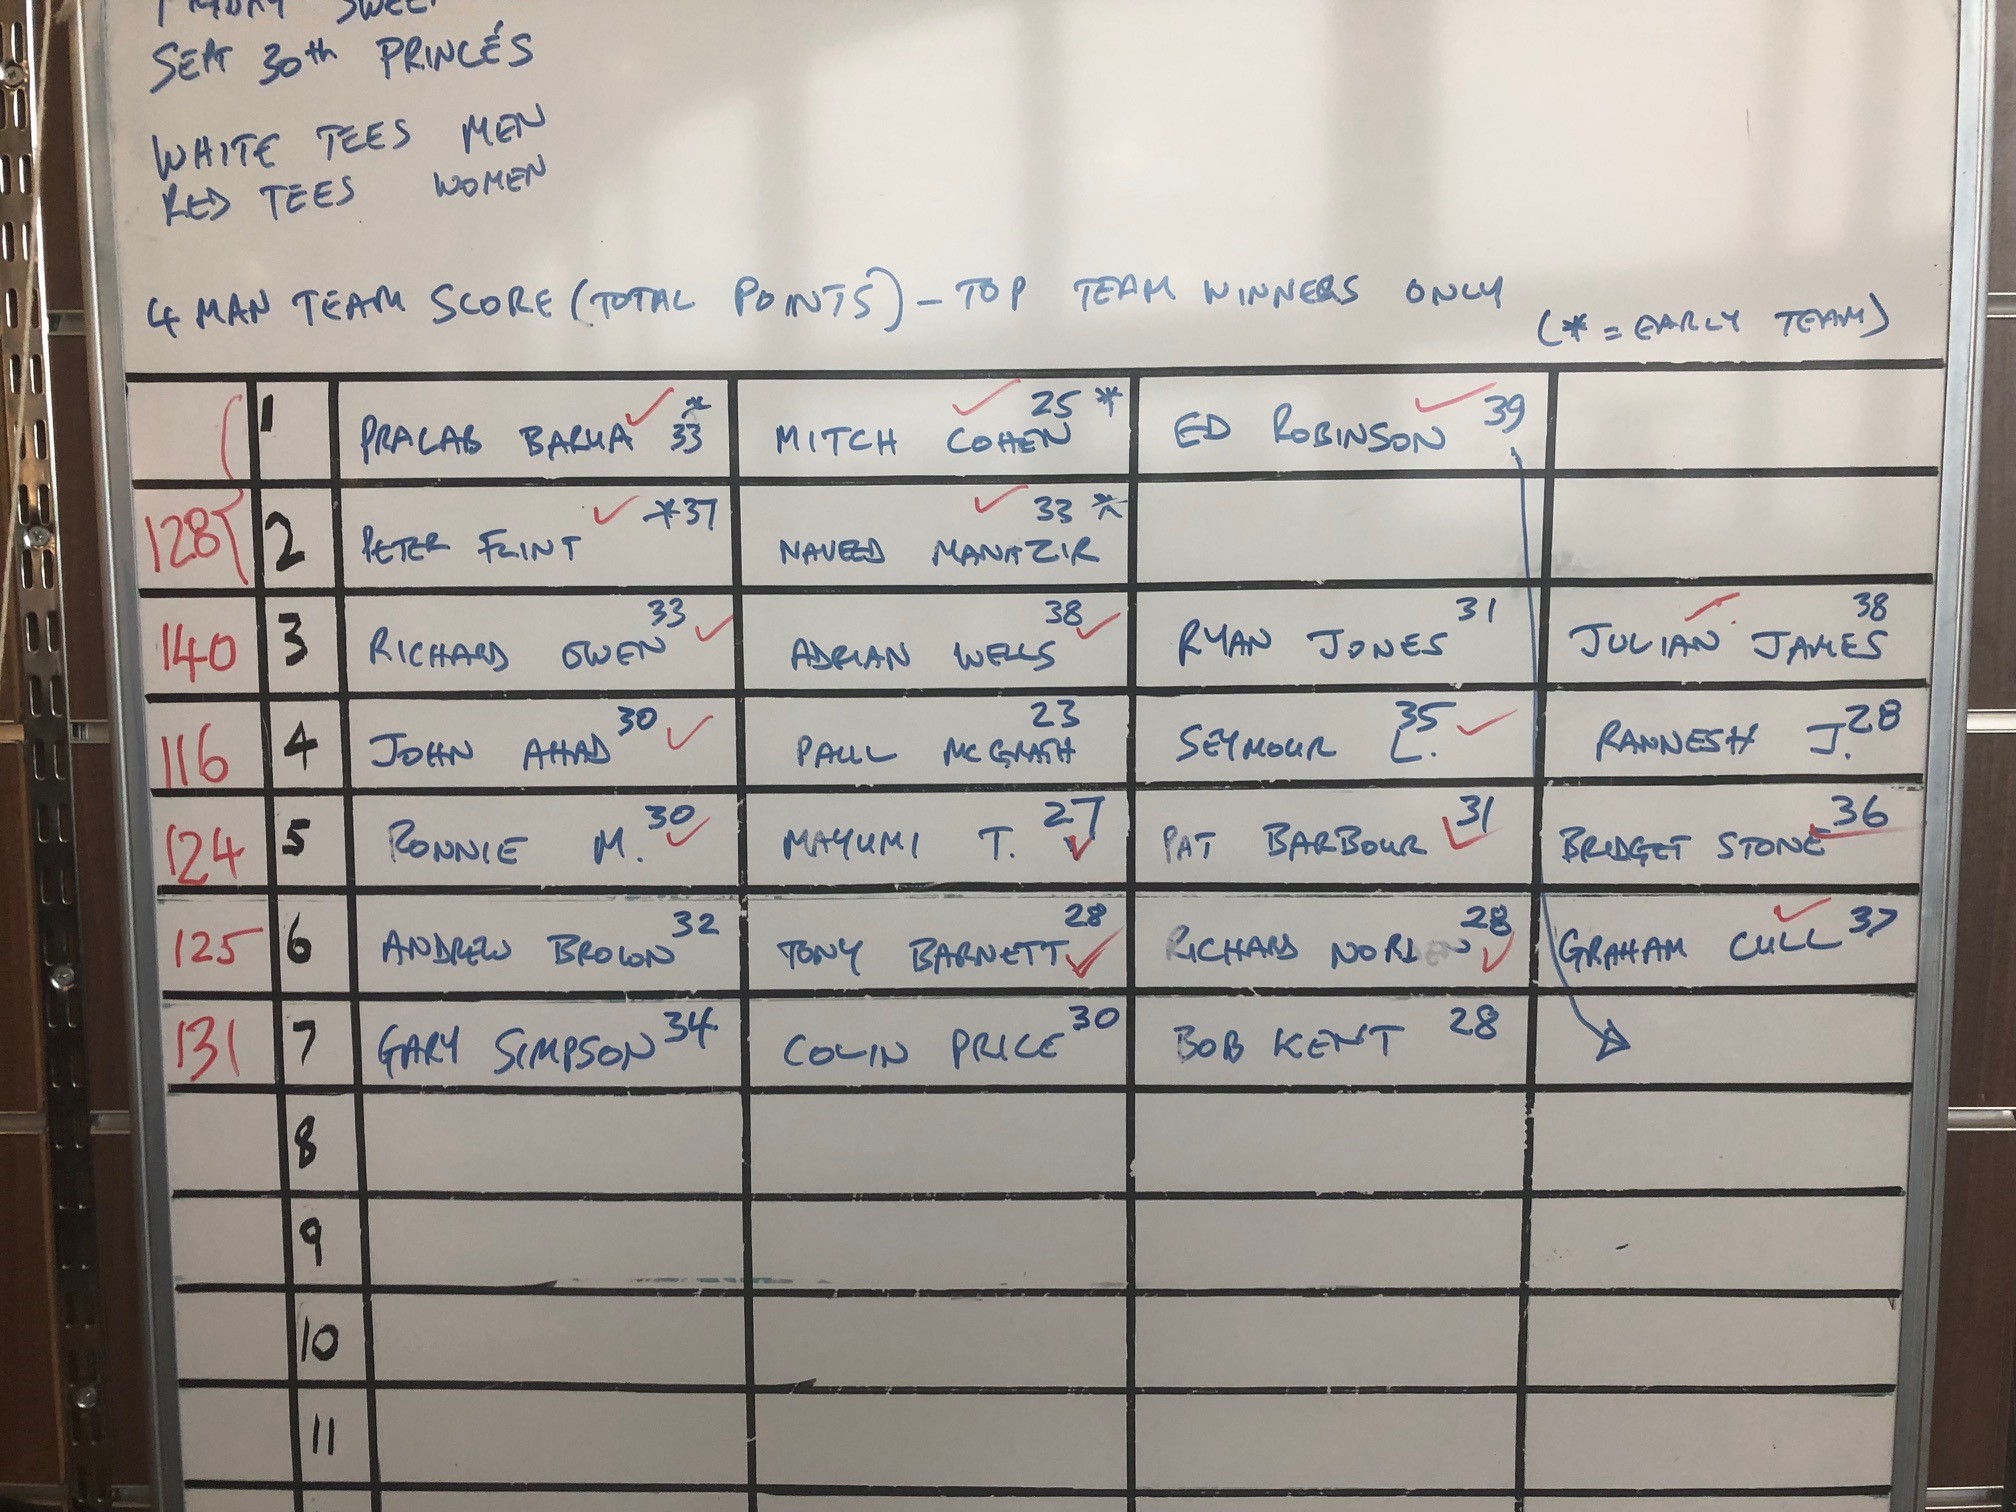 FRIDAY SWEEP
SEPT 30th PRINCE'S
WHITE TEES MEN
RED TEES WOMEN
4 MAN TEAM SCORE (TOTAL POINTS) - TOP TEAM WINNERS ONLY
(* = EARLY TEAM)
1 PRALAB BARUA * 33 MITCH COHEN 25 * ED ROBINSON 39
128 2 PETER FLINT *37 NAVEED MANAZIR 33 *
140 3 RICHARD OWEN 33 ADRIAN WELLS 38 RYAN JONES 31 JULIAN JAMES 38
116 4 JOHN AHAD 30 PAUL MCGRATH 23 SEYMOUR L. 35 RANNESH J. 28
124 5 RONNIE M. 30 MAYUMI T. 27 PAT BARBOUR 31 BRIDGET STONE 36
125 6 ANDREW BROWN 32 TONY BARNETT 28 RICHARD NORDEN 28 GRAHAM CULL 37
131 7 GARY SIMPSON 34 COLIN PRICE 30 BOB KENT 28
8
9
10
11